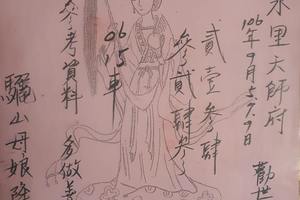 水里天師府
106年9月5.7.9日
勸世
貳壹參肆
參貳肆參
06 15車
參考資料 多做善
驪山母娘降